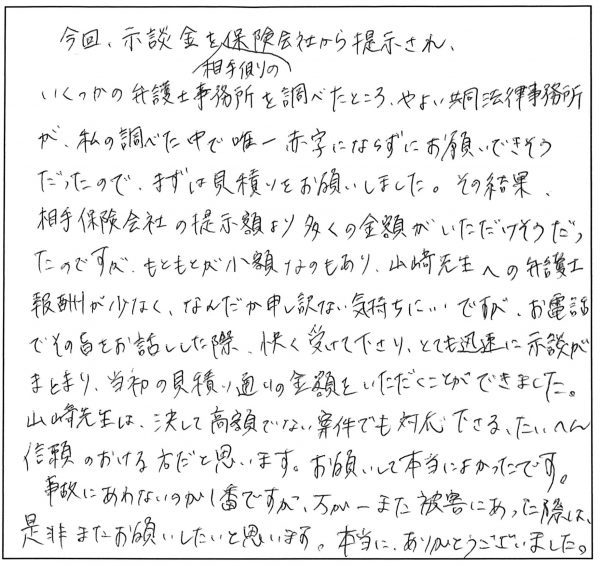 今回、示談金を保険会社から提示され、
相手側の
いくつかの弁護士事務所を調べたところ、やよい共同法律事務所
が、私の調べた中で唯一赤字にならずにお願いできそう
だったので、まずは見積りをお願いしました。その結果、
相手保険会社の提示額より多くの金額がいただけそうだっ
たのですが、もともとが小額なのもあり、山﨑先生への弁護士
報酬が少なく、なんだか申し訳ない気持ちに…ですが、お電話
でその旨をお話しした際、快く受けて下さり、とても迅速に示談が
まとまり、当初の見積り通りの金額をいただくことができました。
山﨑先生は、決して高額でない案件でも対応下さる、たいへん
信頼のおける方だと思います。お願いして本当によかったです。
事故にあわないのが1番ですが、万が一また被害にあった際は、
是非またお願いしたいと思います。本当に、ありがとうございました。